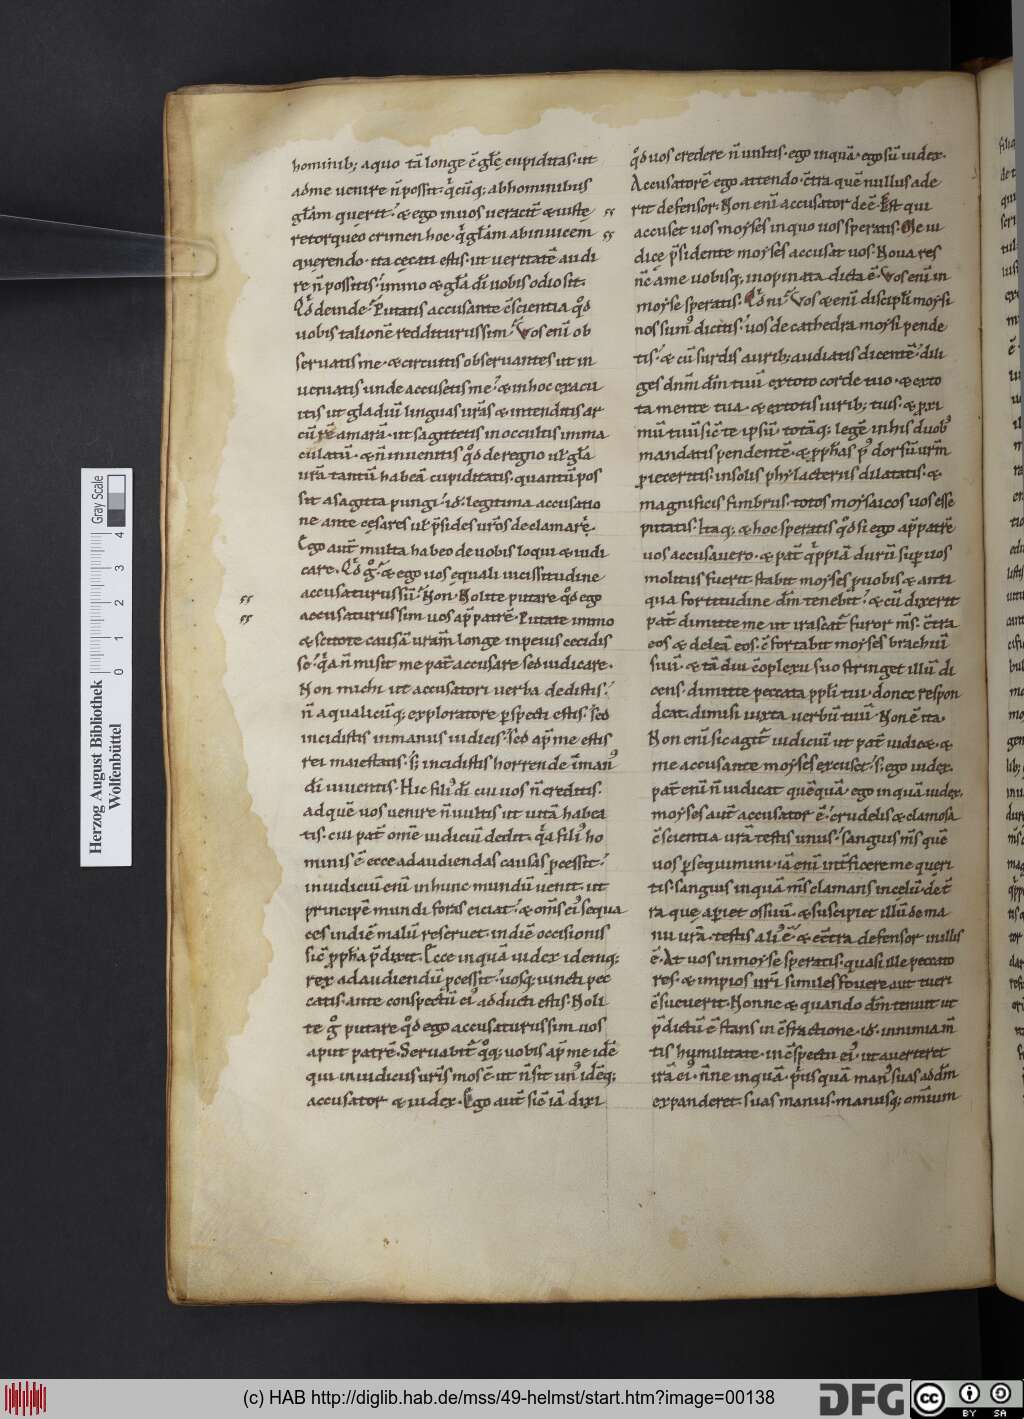 hominib; aquo tā longe ē gl̄ę cupiditas· ut
adme uenire n̄ possit· q̄cūq; abhominibus
gl̄am querit· & ego inuos ueracit̄ & iuste
retorqueo crimen hoc· q̄ gl̄am abinuicem
querendo· ita cęcati estis· ut ueritatē audi
re n̄ possitis· immo & gl̄a dī uobis odio sit·
Qd̄ deinde· Putatis accusante c̄scientia qd̄
uobis talionē redditurus sim· Vos enī ob
seruatis me· & circuitis obseruantes ut in
ueniatis unde accusetis me· & inhoc exacu
itis ut gladiū linguas ur̄as & intenditis ar
cū rē amarā· ut sagittetis inoccultis imma
culatū· & n̄ inuenitis qd̄ de regno ul̄ gl̄a
ur̄a tantū habeā cupiditatis· quantū pos
sit asagitta pungi· id· legitima accusatio
ne ante cęsares ul̄ p̄sides ur̄os declamare·
Ego aut̄ multa habeo de uobis loqui & iudi
care· Qd̄ g̊· & ego uos equali uicissitudine
accusaturus sū· Non· Nolite putare qd̄ ego
accusaturus sim uos ap̄ patrē· Putate immo
& scitote causā ur̄am longe inpeius cecidis
se· q̄a n̄ misit me pat̄ accusare sed iudicare·
Non michi ut accusatori uerba dedistis·
n̄ aqualicūq; exploratore p̱specti estis· sed
incidistis inmanus iudicis· sed ap̄ me estis
rei maiestatis· s; incidistis horrende ī man᾿
dī uiuentis· Hic fili᾿ dī· cui uos n̄ creditis·
ad quē uos uenire n̄ uultis ut uitā habea
tis· cui pat̄ om̄e iudiciū dedit· q̄a fili᾿ ho
minis ē ecce adaudiendas causas p̄cessit·
iniudiciū enī inhunc mundū uenit· ut
principē mundi foras eiciat· & om̄s ei᾿ sequa
ces indiē malū reseruet· indiē occisionis
sic̄ p̱ph̄a p̄dixit· Ecce inquā iudex idemq;
rex adaudiendū p̱cessit· uosq; uincti pec
catis· ante conspectū ei᾿ adducti estis· Noli
te g̊ putare qd̄ ego accusaturus sim uos
aput patrē· Seruabit̄ q̊q; uobis ap̄ me idē
qui iniudiciis ur̄is mos ē· ut n̄ sit un᾿ idēq;
accusator & iudex· Ego aut̄ sic̄ iā dixi
qd̄ uos credere n̄ uultis· ego inquā· ego sū iudex·
Accusatorē ego attendo· c̄tra quē nullus ade
rit defensor· Non enī accusator deē· Est qui
accuset uos moyses inquo uos speratis· Me iu
dice p̄sidente moyses accusat uos· Noua res
n̄c ame uobisq; inopinata dicta ē· Vos enī in
moyse speratis· Qd̄ ni· Vos & enī discipl̄i moysi
nos sum᾿ dicitis· uos de cathedra moysi pende
tis· & cū surdis aurib; audiatis dicentē· dili
ges dnm̄ dm̄ tuū extoto corde tuo· & exto
ta mente tua· & extotis uirib; tuis· & p̱xi
mū tuū sic̄ te ipsū· totāq; legē inhis duob᾿
mandatis pendentē· & p̱ph̄as p᾿ dorsū ur̄m
p̱ieceritis· insolis phylacteriis dilatatis· &
magnificis fimbriis· totos moysaicos uos esse
putatis· Itaq; & hoc speratis qd̄ si ego ap̄ patrē
uos accusauero· & pat̄ q̄ppiā durū sup̱ uos
molitus fuerit stabit moyses p̱ uobis & anti
qua fortitudine dm̄ tenebit· & cū dixerit
pat̄ dimitte me ut irascat̄ furor m̄s· c̄tra
eos & deleā eos· c̄fortabit moyses brachiū
suū· & tā diu c̄plexu suo stringet illū di
cens· dimitte peccata ppl̄i tui· donec respon
deat· dimisi iuxta uerbū tuū· Non ē ita·
Non enī sic agit̄ iudiciū ut pat̄ iudicet· &
me accusante moyses excuset· s; ego iudex·
pat̄ enī n̄ iudicat quēquā· ego inquā iudex·
moyses aut̄ accusator ē· crudelis & clamosa
c̄scientia ur̄a testis unus· sanguis m̄s quē
uos p̱sequimini· iā enī int̄ficere me queri
tis· sanguis inquā m̄s clamans incelū de t̄
ra que aperiet os suū· & suscipiet illū de ma
nu ur̄a· testis ali᾿ ē· & ec̄tra defensor nullis
ē· At uos inmoyse speratis· quasi ille peccato
res· & impios ur̄i similes fouere aut tueri
c̄sueuerit· Nonne & quando dm̄ tenuit ut
p̄dictū ē stans in c̄fractione· id· innimia m̄
tis humilitate· in c̄spectu ei᾿ ut auerteret
irā ei᾿· n̄ne inquā· p̱usquā man᾿ suas ad dm̄
expanderet· suas manus· manusq; omnium
Herzog August Bibliothek
Wolfenbüttel
0 1 2 3 4
Gray Scale
(c) HAB http://diglib.hab.de/mss/49-helmst/start.htm?image=00138
DFG
cc BY SA